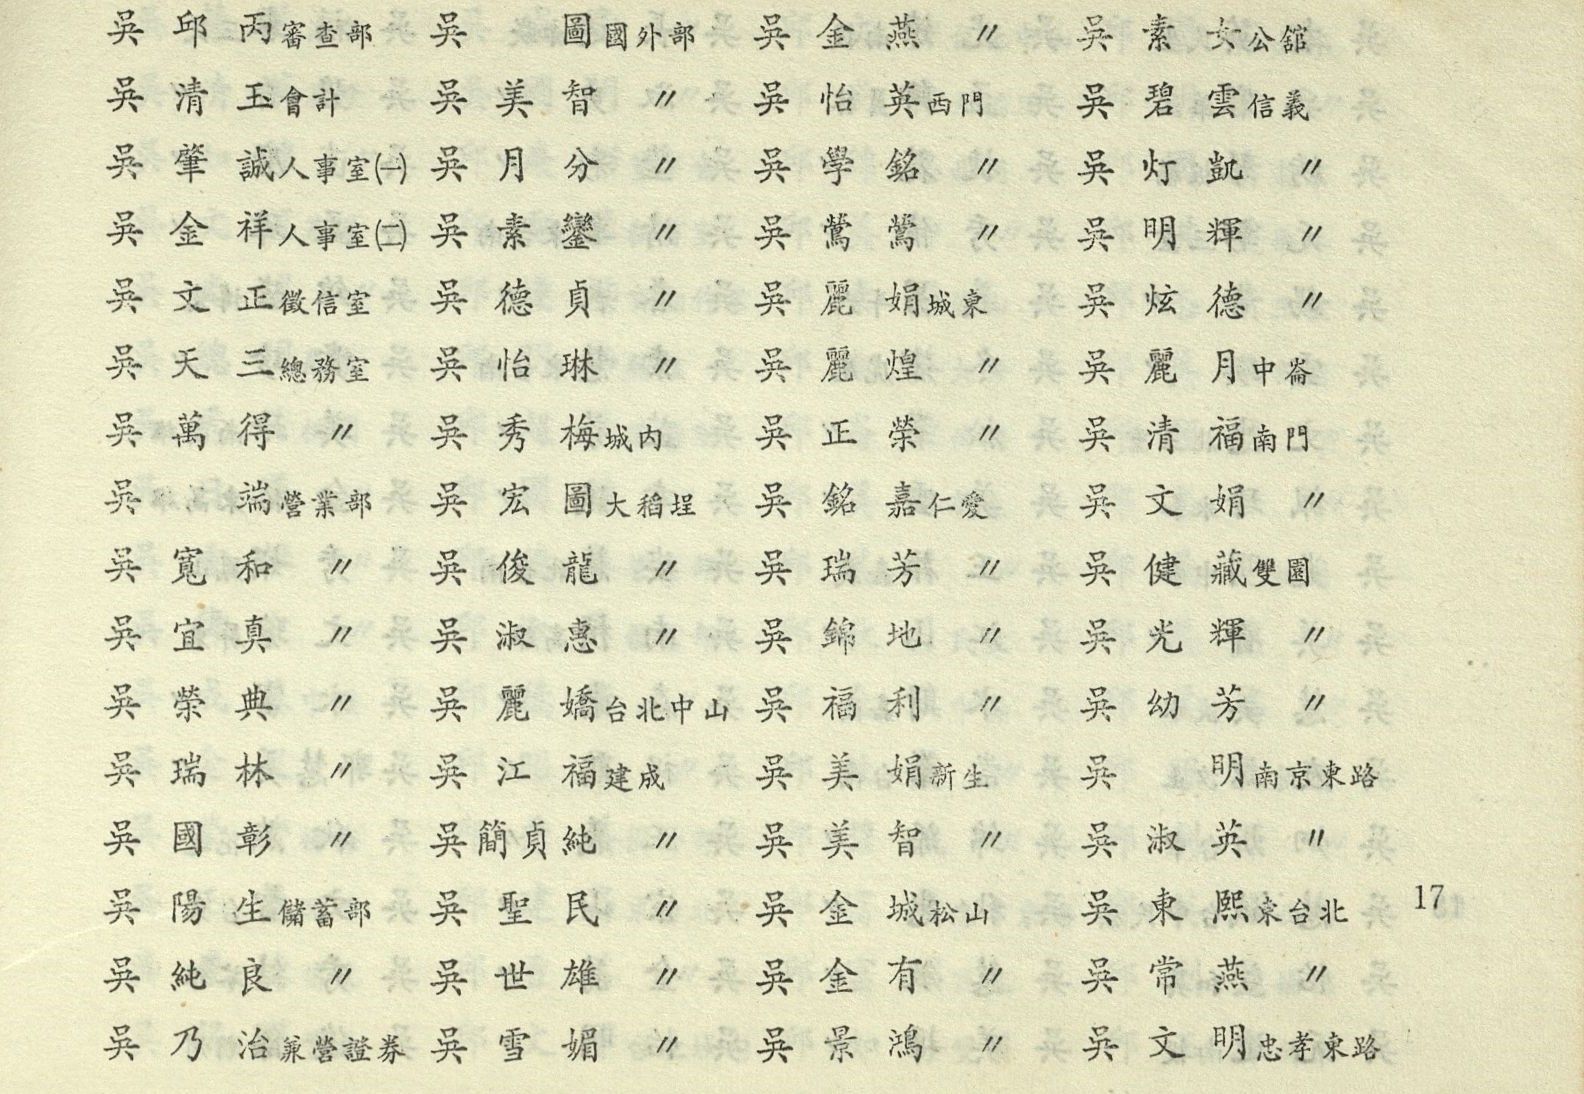 吳邱丙審查部 吳圖國外部 吳金燕〃 吳素女公舘
吳清玉會計 吳美智〃 吳怡英西門 吳碧雲信義
吳肇誠人事室㈠ 吳月分〃 吳學銘〃 吳灯凱〃
吳金祥人事室㈡ 吳素鑾〃 吳鶯鶯〃 吳明輝〃
吳文正徵信室 吳德貞〃 吳麗娟城東 吳炫德〃
吳天三總務室 吳怡琳〃 吳麗煌〃 吳麗月中崙
吳萬得〃 吳秀梅城內 吳正榮〃 吳清福南門
吳端營業部 吳宏圖大稻埕 吳銘嘉仁愛 吳文娟〃
吳寬和〃 吳俊龍〃 吳瑞芳〃 吳健藏雙園
吳宜真〃 吳淑惠〃 吳錦地〃 吳光輝〃
吳榮典〃 吳麗嬌台北中山 吳福利〃 吳幼芳〃
吳瑞林〃 吳江福建成 吳美娟新生 吳明南京東路
吳國彰〃 吳簡貞純〃 吳美智〃 吳淑英〃
吳陽生儲蓄部 吳聖民〃 吳金城松山 吳東熙東台北 17
吳純良〃 吳世雄〃 吳金有〃 吳常燕〃
吳乃治兼營證券 吳雪媚〃 吳景鴻〃 吳文明忠孝東路